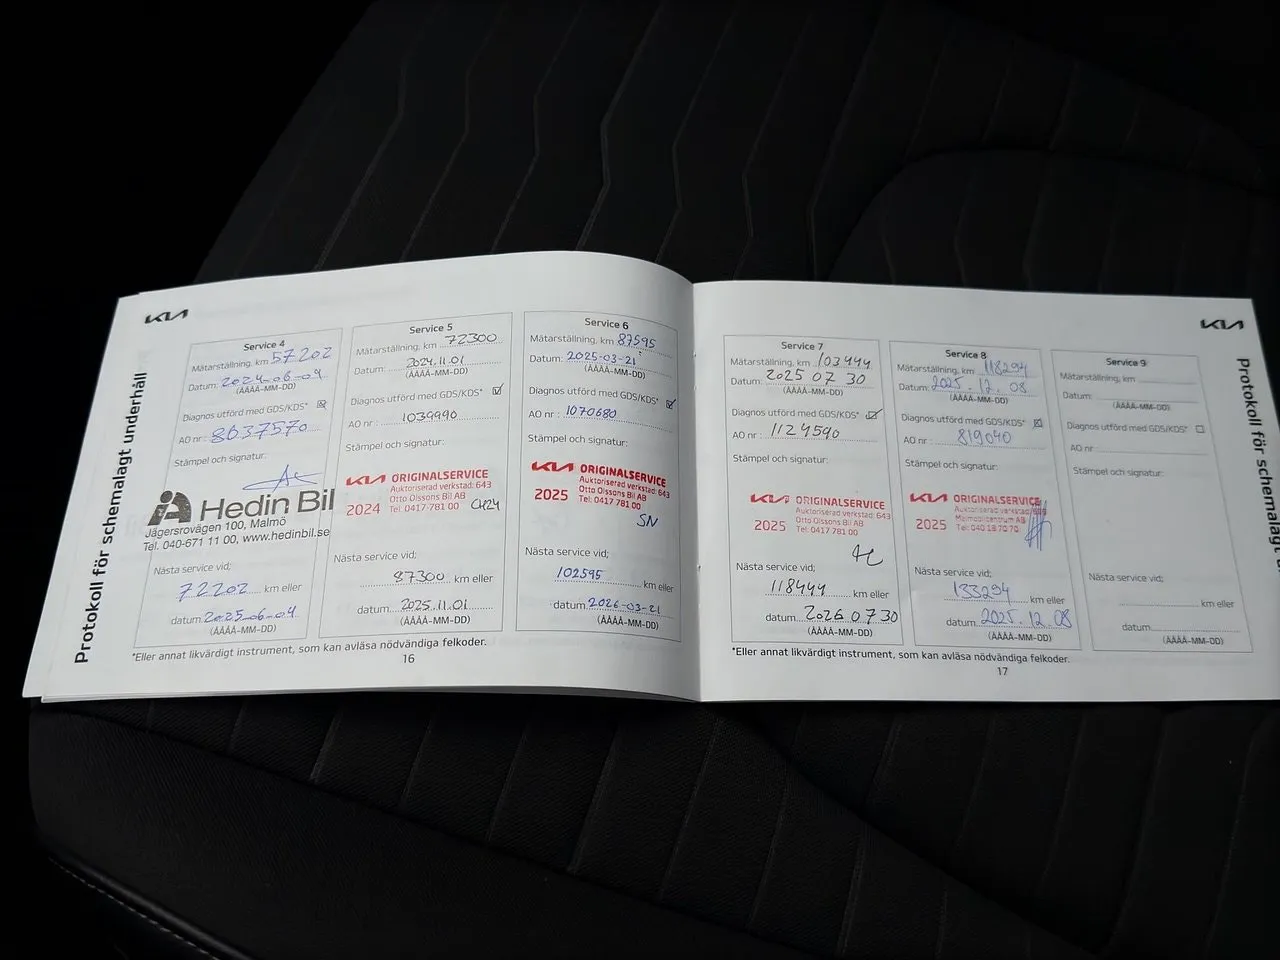 KIA
Protokoll för schemalagt underhåll
Service 4
Mätarställning, km 57202
Datum: 2024-06-04
(ÅÅÅÅ-MM-DD)
Diagnos utförd med GDS/KDS*
AO nr: 8637570
Stämpel och signatur:
Hedin Bil
Jägersrovägen 100, Malmö
Tel. 040-671 11 00, www.hedinbil.se
Nästa service vid;
72202 km eller
datum 2025-06-04
(ÅÅÅÅ-MM-DD)
Service 5
Mätarställning, km 72300
Datum: 2024.11.01
(ÅÅÅÅ-MM-DD)
Diagnos utförd med GDS/KDS*
AO nr: 1039990
Stämpel och signatur:
KIA ORIGINALSERVICE
Auktoriserad verkstad: 643
Otto Olssons Bil AB
2024 Tel: 0417 781 00
Nästa service vid;
87300 km eller
datum 2025.11.01
(ÅÅÅÅ-MM-DD)
Service 6
Mätarställning, km 87595
Datum: 2025-03-21
(ÅÅÅÅ-MM-DD)
Diagnos utförd med GDS/KDS*
AO nr: 1070680
Stämpel och signatur:
KIA ORIGINALSERVICE
Auktoriserad verkstad: 643
Otto Olssons Bil AB
2025 Tel: 0417 781 00
SN
Nästa service vid;
102595 km eller
datum 2026-03-21
(ÅÅÅÅ-MM-DD)
*Eller annat likvärdigt instrument, som kan avläsa nödvändiga felkoder.
16
KIA
Protokoll för schemalagt
Service 7
Mätarställning, km 103444
Datum: 2025 07 30
(ÅÅÅÅ-MM-DD)
Diagnos utförd med GDS/KDS*
AO nr: 1124590
Stämpel och signatur:
KIA ORIGINALSERVICE
Auktoriserad verkstad: 643
Otto Olssons Bil AB
2025 Tel: 0417 781 00
Nästa service vid;
118444 km eller
datum 2026 07 30
(ÅÅÅÅ-MM-DD)
Service 8
Mätarställning, km 118294
Datum: 2025.12.08
(ÅÅÅÅ-MM-DD)
Diagnos utförd med GDS/KDS*
AO nr: 819040
Stämpel och signatur:
KIA ORIGINALSERVICE
Auktoriserad verkstad:
Malmobilcentrum AB
2025 Tel: 040 18 70 70
Nästa service vid;
133294 km eller
datum 2025.12.08
(ÅÅÅÅ-MM-DD)
Service 9
Mätarställning, km
Datum:
(ÅÅÅÅ-MM-DD)
Diagnos utförd med GDS/KDS*
AO nr:
Stämpel och signatur:
Nästa service vid;
km eller
datum
(ÅÅÅÅ-MM-DD)
*Eller annat likvärdigt instrument, som kan avläsa nödvändiga felkoder.
17